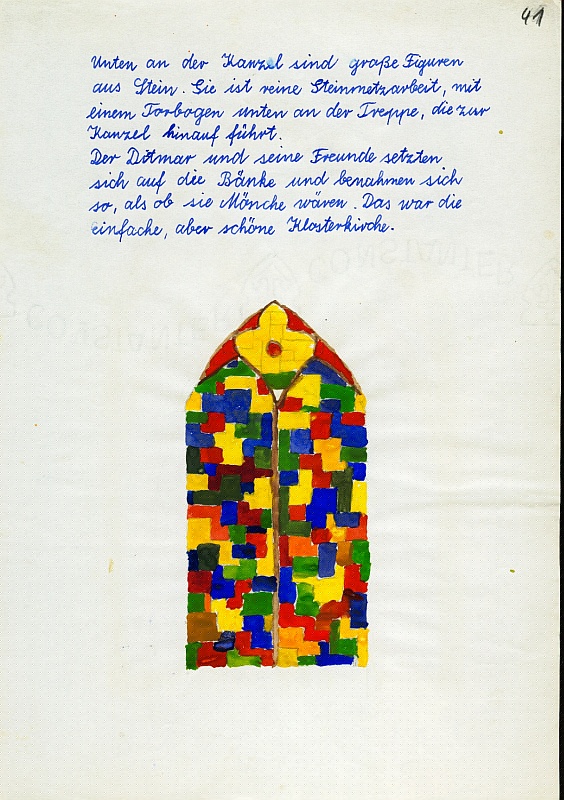 41
Unten an der Kanzel sind große Figuren
aus Stein. Sie ist reine Steinmetzarbeit, mit
einem Torbogen unten an der Treppe, die zur
Kanzel hinauf führt.
Der Ditmar und seine Freunde setzten
sich auf die Bänke und benahmen sich
so, als ob sie Mönche wären. Das war die
einfache, aber schöne Klosterkirche.